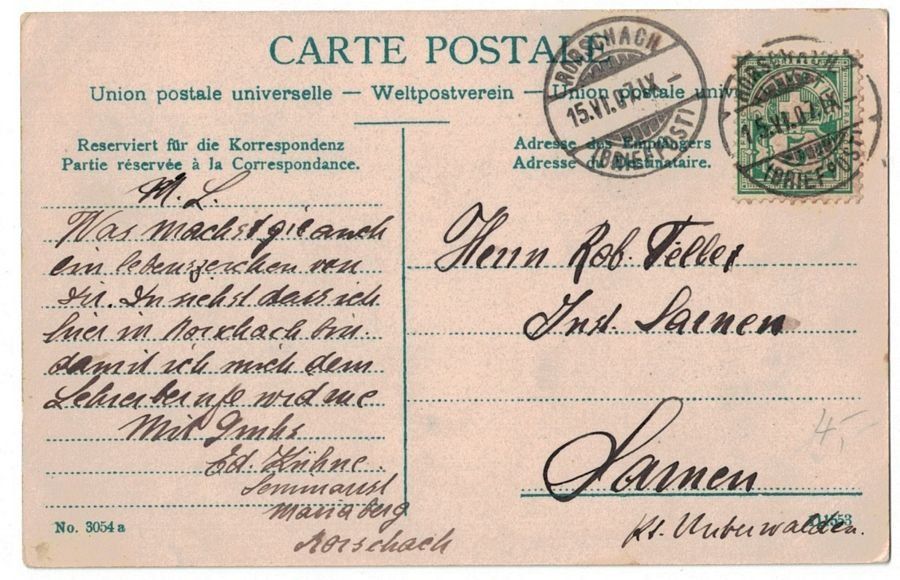 CARTE POSTALE
Union postale universelle — Weltpostverein — Union postale univ
RORSCHACH
15.VI.07.IX–
(BRIEFPOST)
RORSCHACH
15.VI.07.IX–
(BRIEFPOST)
Reserviert für die Korrespondenz
Partie réservée à la Correspondance.
Adresse des Empfängers
Adresse du Destinataire.
M. L.
Was machst gib auch
ein lebenszeichen von
Dir. Du siehst dass ich
hier in Rorschach bin
damit ich mich dem
Lehrerberufe widme
Mit Gruss
Ed. Kühne.
Seminarist
Mariaberg
Rorschach
Herrn Rob. Feller
Inst. Sarnen
Sarnen
Kt. Unterwalden.
4,-
No. 3054 a